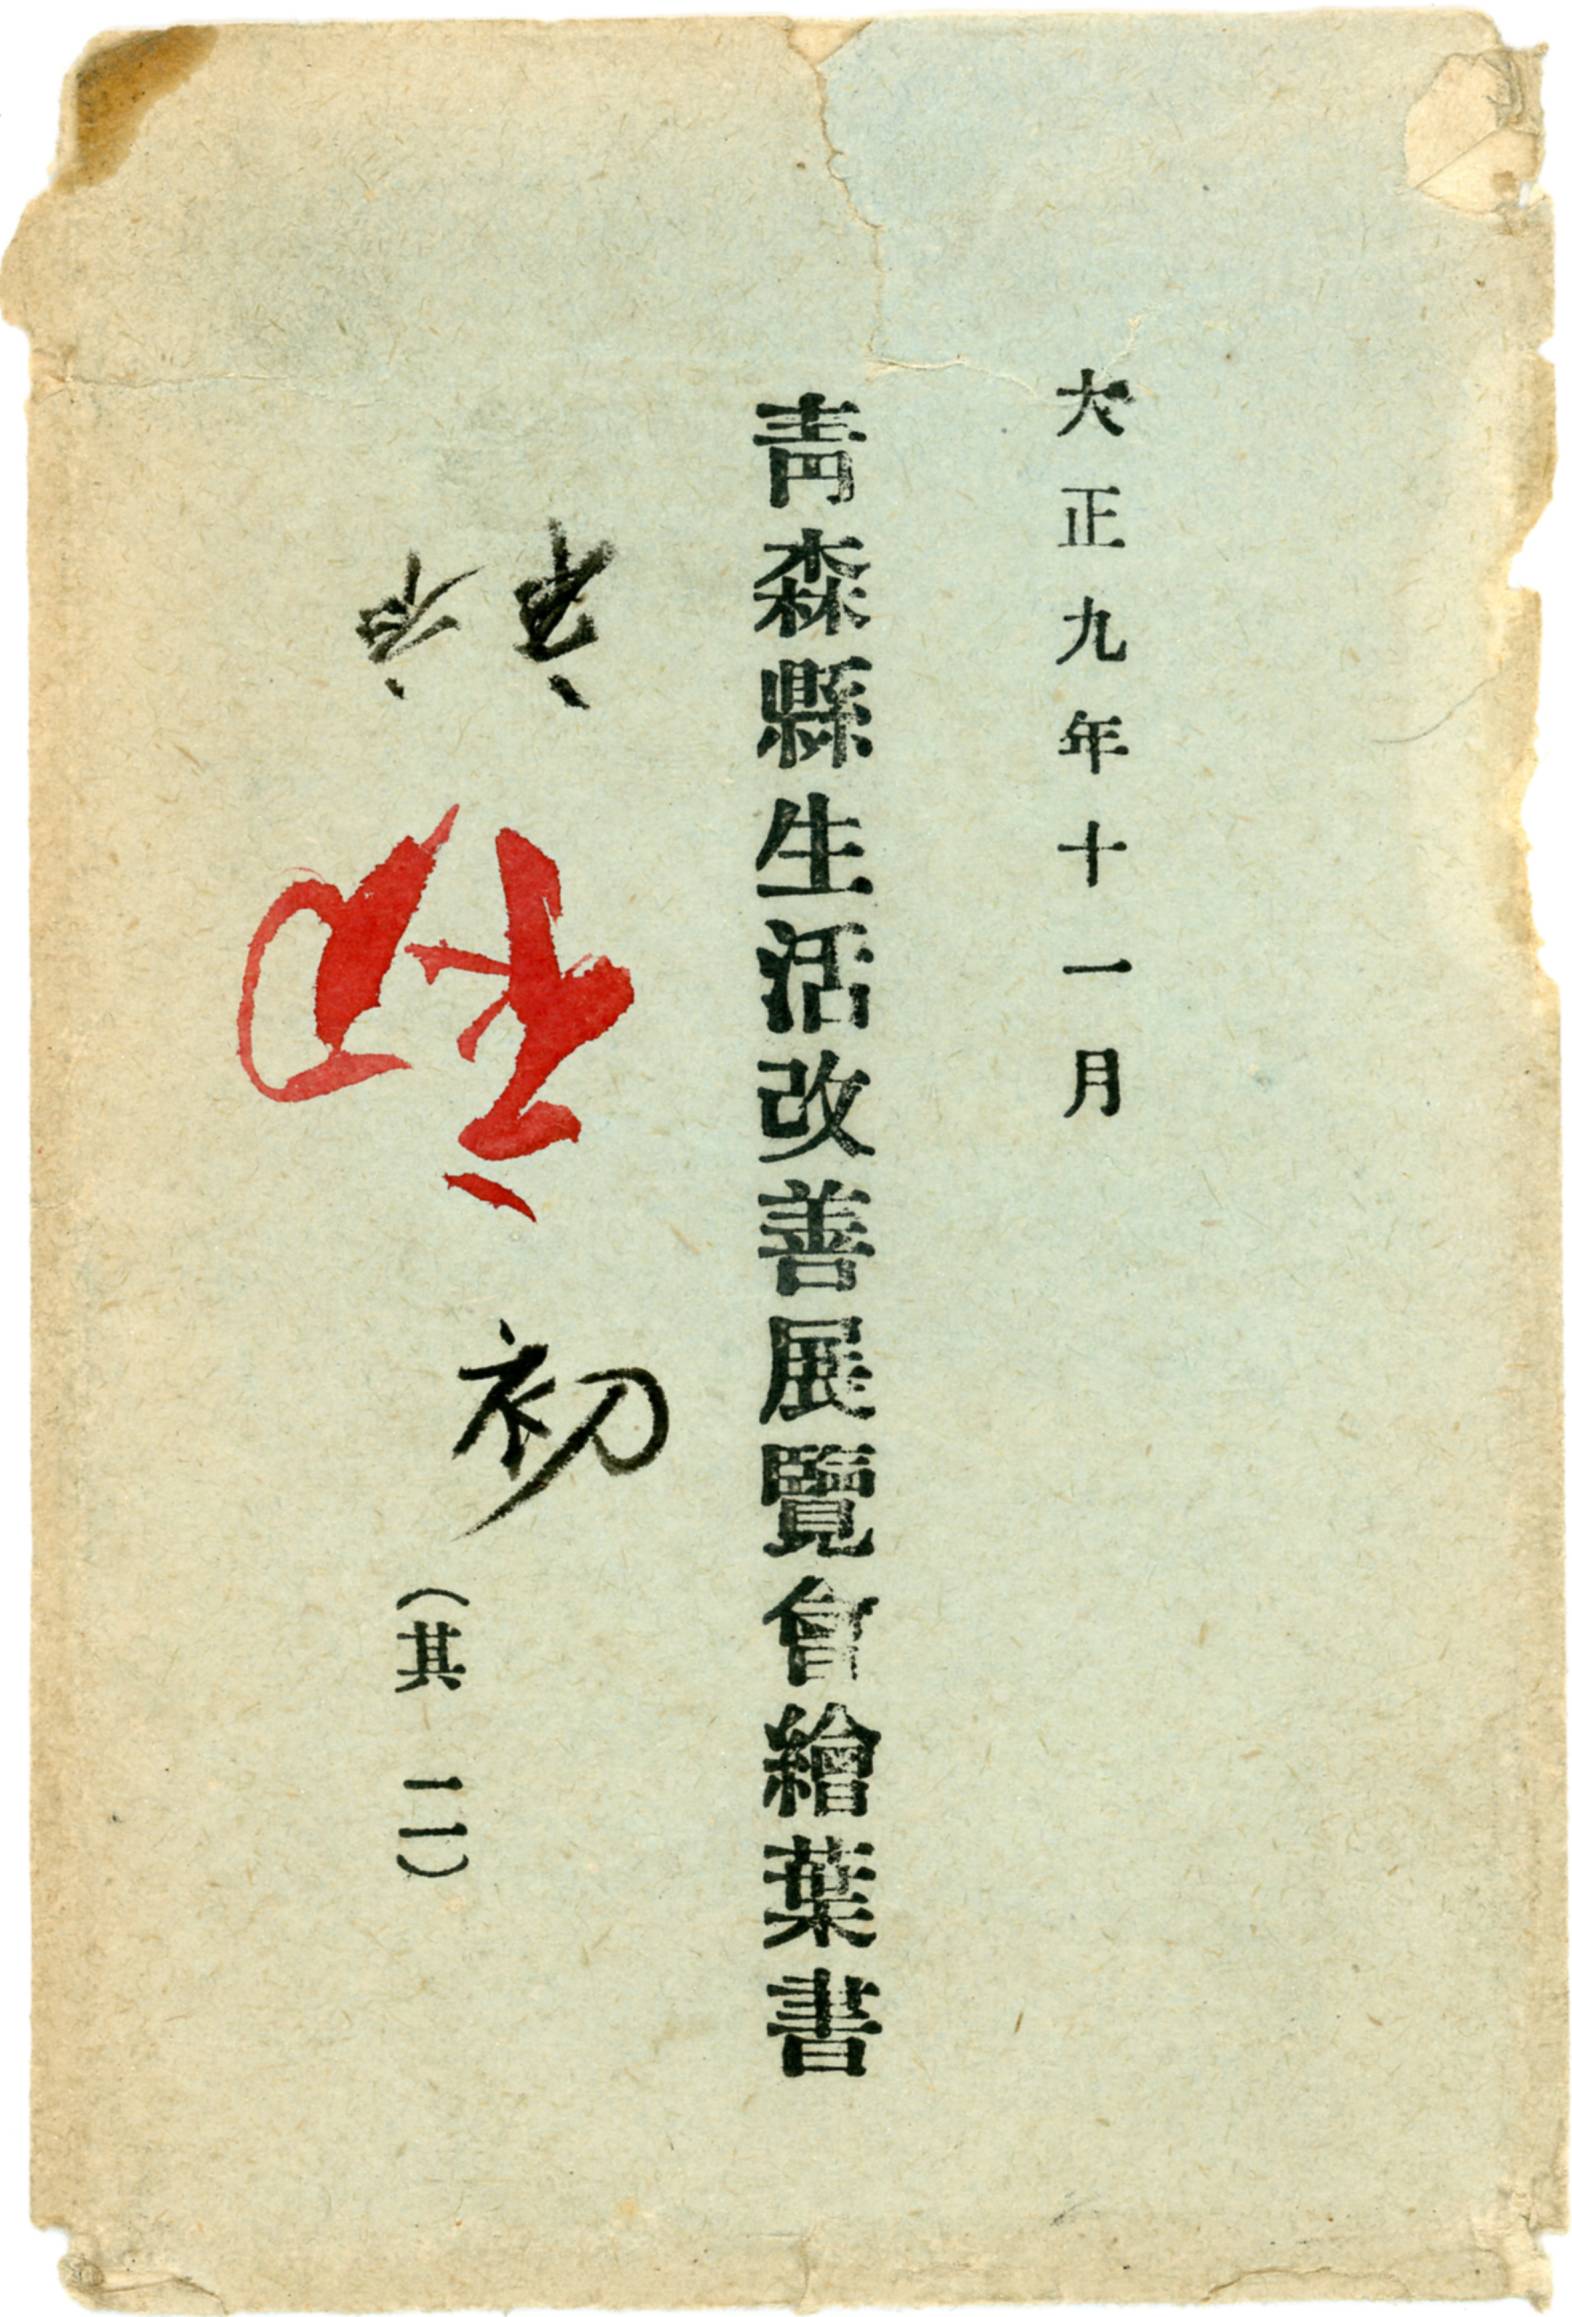 大正九年十一月
青森縣生活改善展覽會繪葉書
初
（其二）